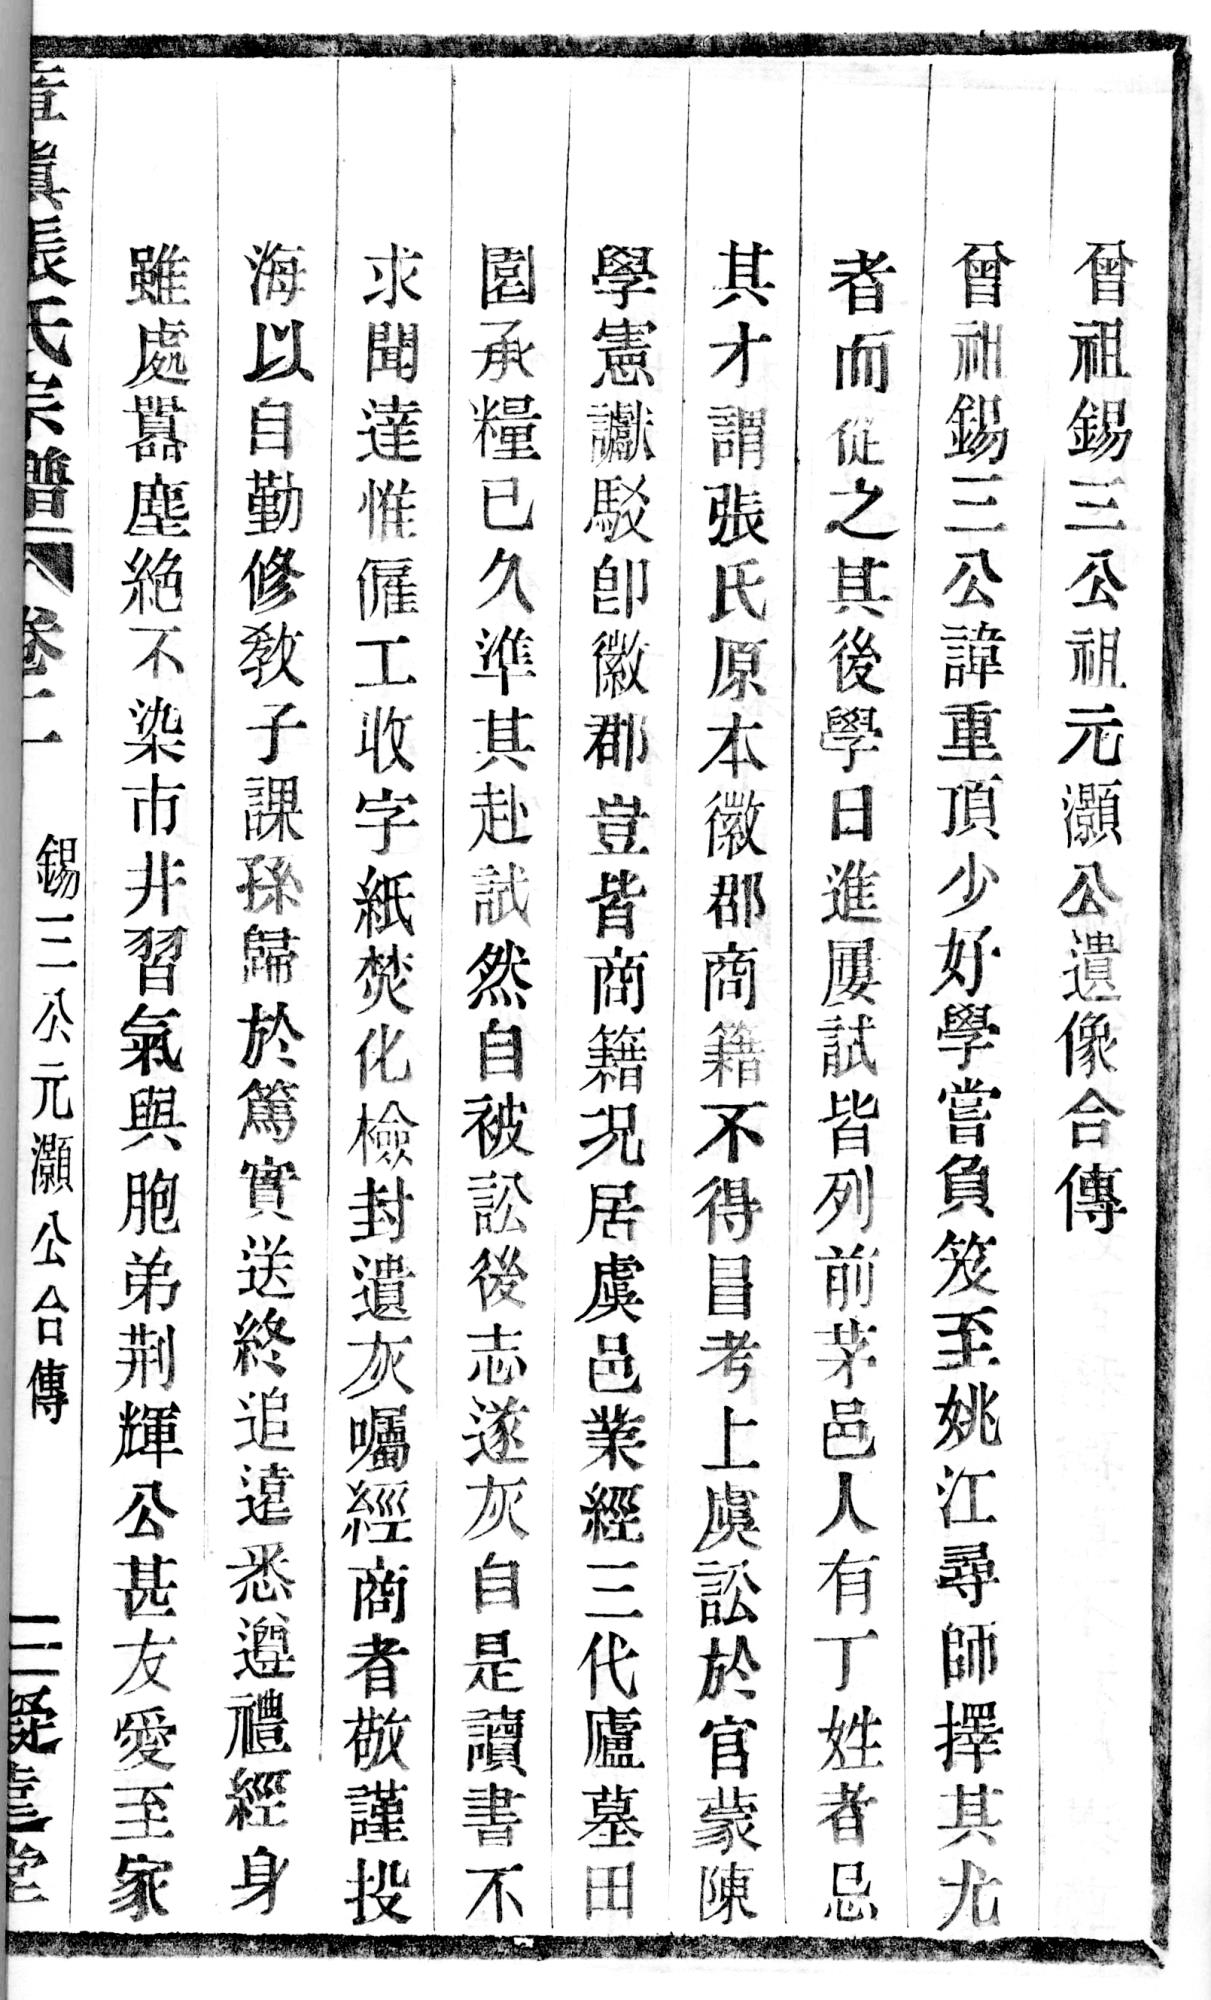 曾祖錫三公祖元灝公遺像合傳
曾祖錫三公諱重頂少好學嘗負笈至姚江尋師擇其尤
者而從之其後學日進屢試皆列前茅邑人有丁姓者忌
其才謂張氏原本徽郡商籍不得冒考上虞訟於官蒙陳
學憲讞駁卽徽郡豈皆商籍况居虞邑業經三代廬墓田
園承糧已久準其赴試然自被訟後志遂灰自是讀書不
求聞達惟僱工收字紙焚化檢封遺灰囑經商者敬謹投
海以自勤修敎子課孫歸於篤實送終追遠悉遵禮經身
雖處囂塵絕不染市井習氣與胞弟荆輝公甚友愛至家
張氏宗譜 卷二 錫三公元灝公合傳 三 堂